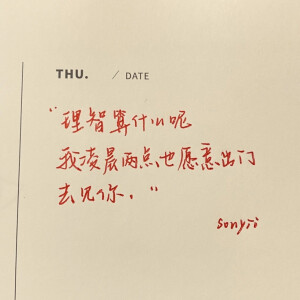 THU. / DATE
“理智算什么呢
我凌晨两点也愿意出门
去见你．”
sonyii